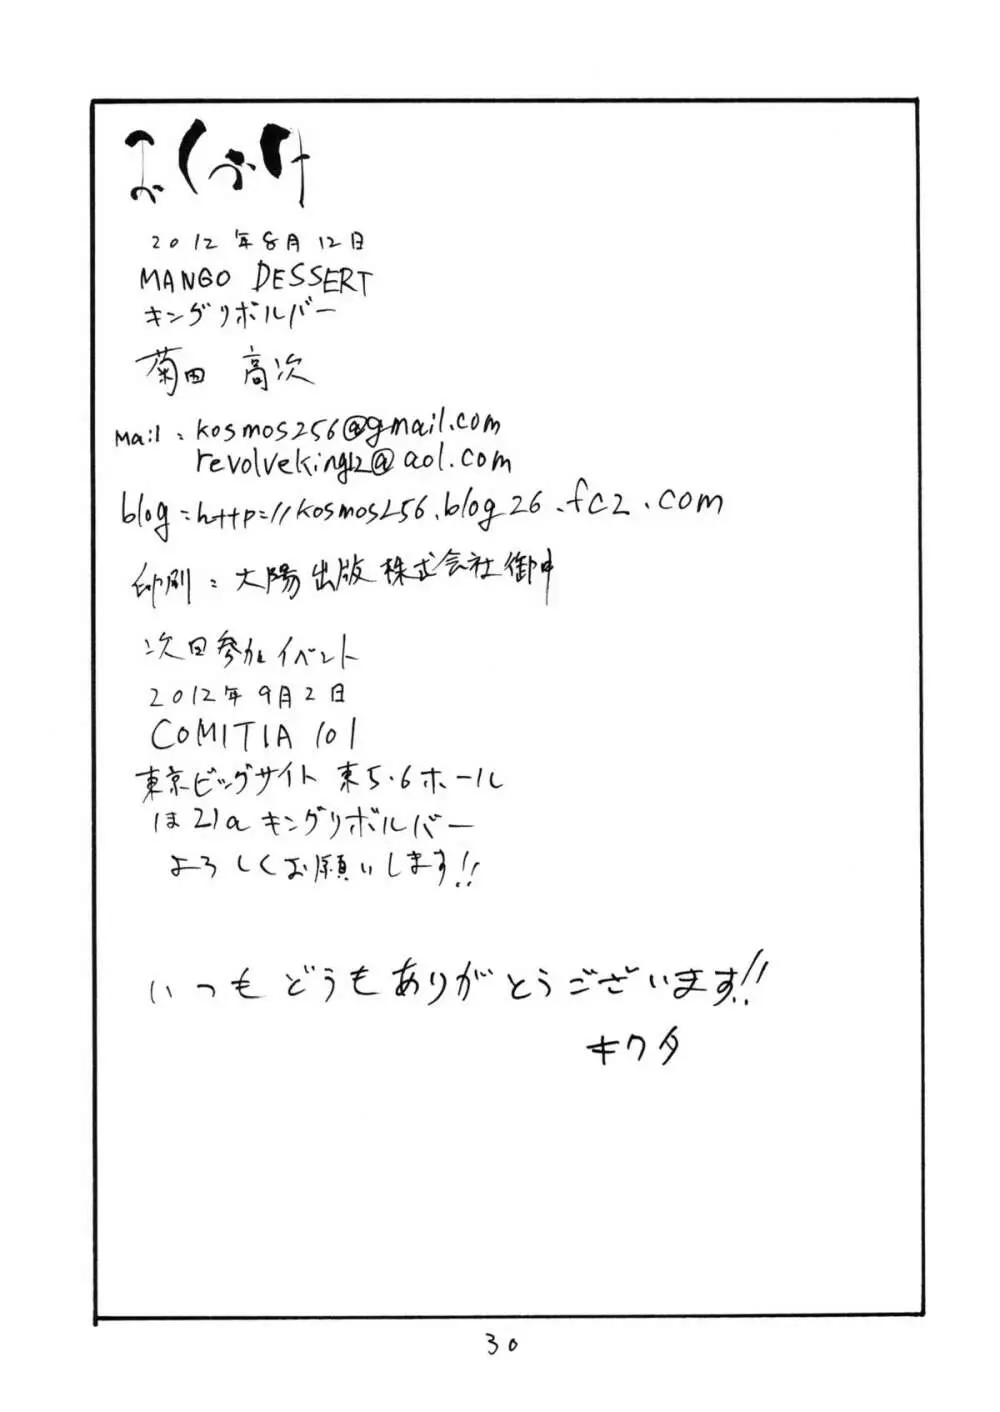 おくづけ
2012年8月12日
MANGO DESSERT
キングリボルバー
菊田 高次
Mail: kosmos256@gmail.com
revolveking12@aol.com
blog=http://kosmos256.blog26.fc2.com
印刷:大陽出版株式会社御中
次回参加イベント
2012年9月2日
COMITIA 101
東京ビッグサイト 東5・6ホール
ほ21a キングリボルバー
よろしくお願いします!!
いつもどうもありがとうございます!!
キクタ
30